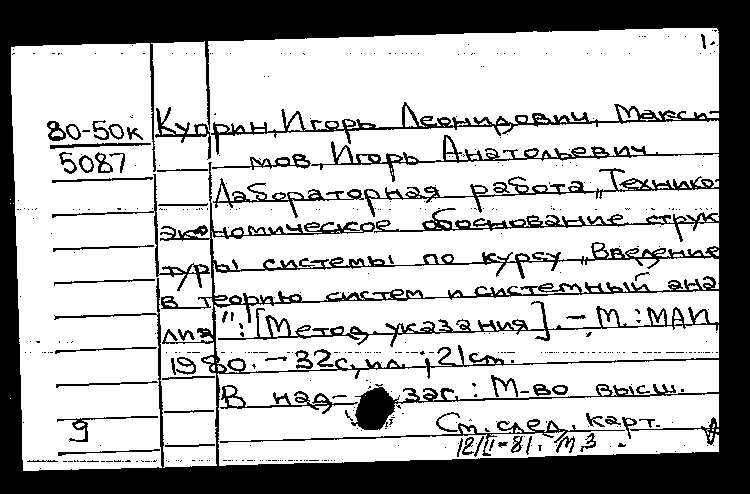 1.
80-50к Куприн, Игорь Леонидович, Макси-
5087 мов, Игорь Анатольевич
Лабораторная работа „Технико-
экономическое обоснование струк
туры системы по курсу „Введение
в теорию систем и системный ана
лиз": [Метод. указания]. - М.: МАИ,
1980. - 32с, ил. ; 21см.
В над- заг. : М-во высш.
9 См. след. карт.
12/II-81. М,3